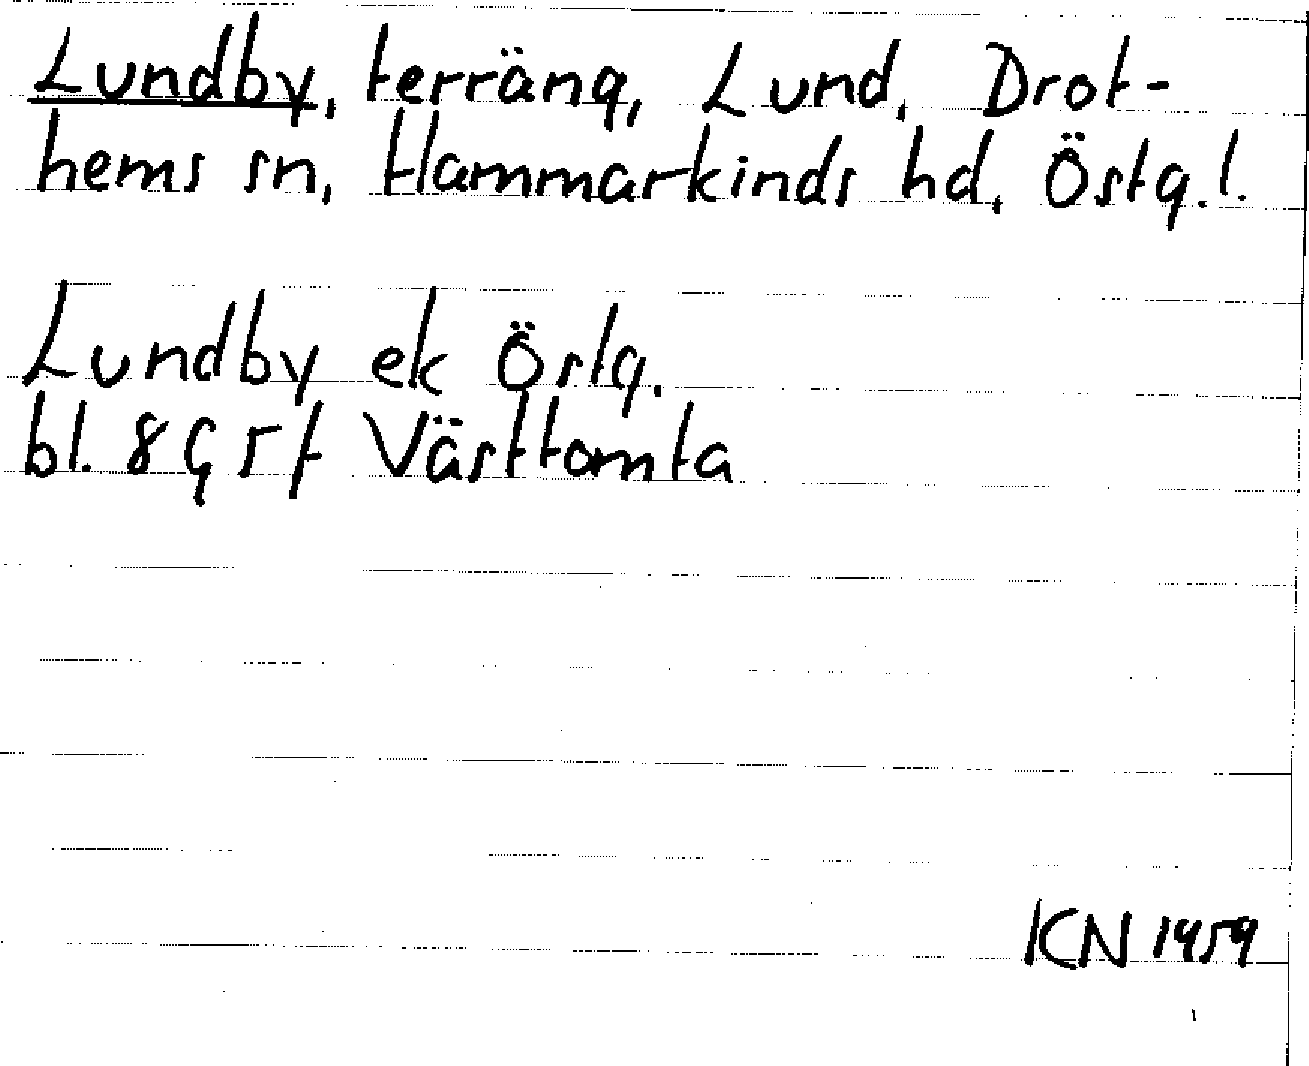 Lundby, terräng, Lund, Drot-
hems sn, Hammarkinds hd, Östg.l.
Lundby ek Östg.
bl. 8G5f Västtomta
KN 1959